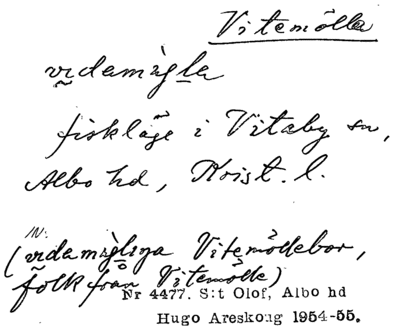 Vitemölla
vidamìgla
fiskläge i Vitaby sn,
Albo hd, Krist. l.
IN:
(vidamìgliga Vitemöllebor,
folk från Vitemölle)
Nr 4477. S:t Olof, Albo hd
Hugo Areskoug 1954-55.